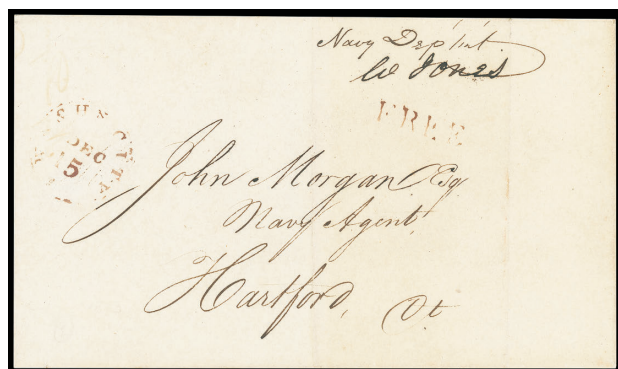 Navy Dep'mt.
W Jones
FREE
WASHN CITY
DEC
15
John Morgan Esq
Navy Agent,
Hartford, Ct.